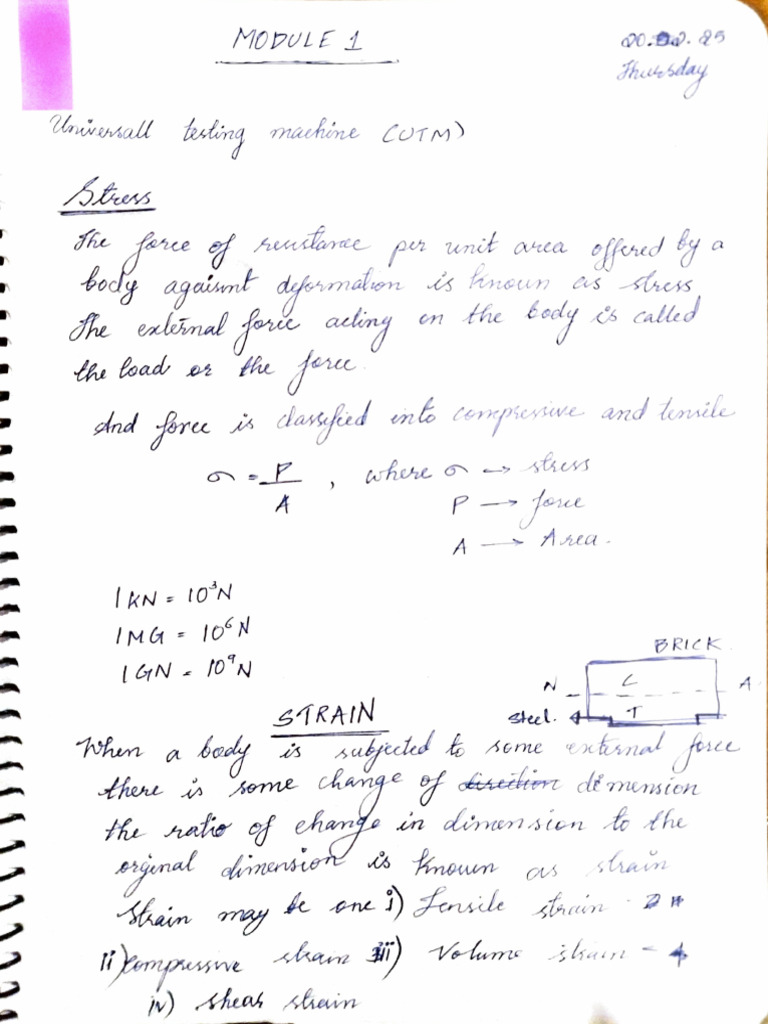 MODULE 1
20.02.25
Thursday
Universall testing machine (UTM)
Stress
The force of resistance per unit area offered by a
body agaisnt deformation is known as stress
The external force acting on the body is called
the load or the force.
And force is classified into compressive and tensile
σ = P/A , where σ → stress
P → force
A → Area.
1 KN = 10³N
1 MG = 10⁶ N
1 GN = 10⁹ N
BRICK
N C A
Steel. T
STRAIN
When a body is subjected to some external force
there is some change of direction dimension
the ratio of change in dimension to the
orginal dimension is known as strain
Strain may be one i) Tensile strain
ii) compressive strain iii) Volume strain
iv) shear strain